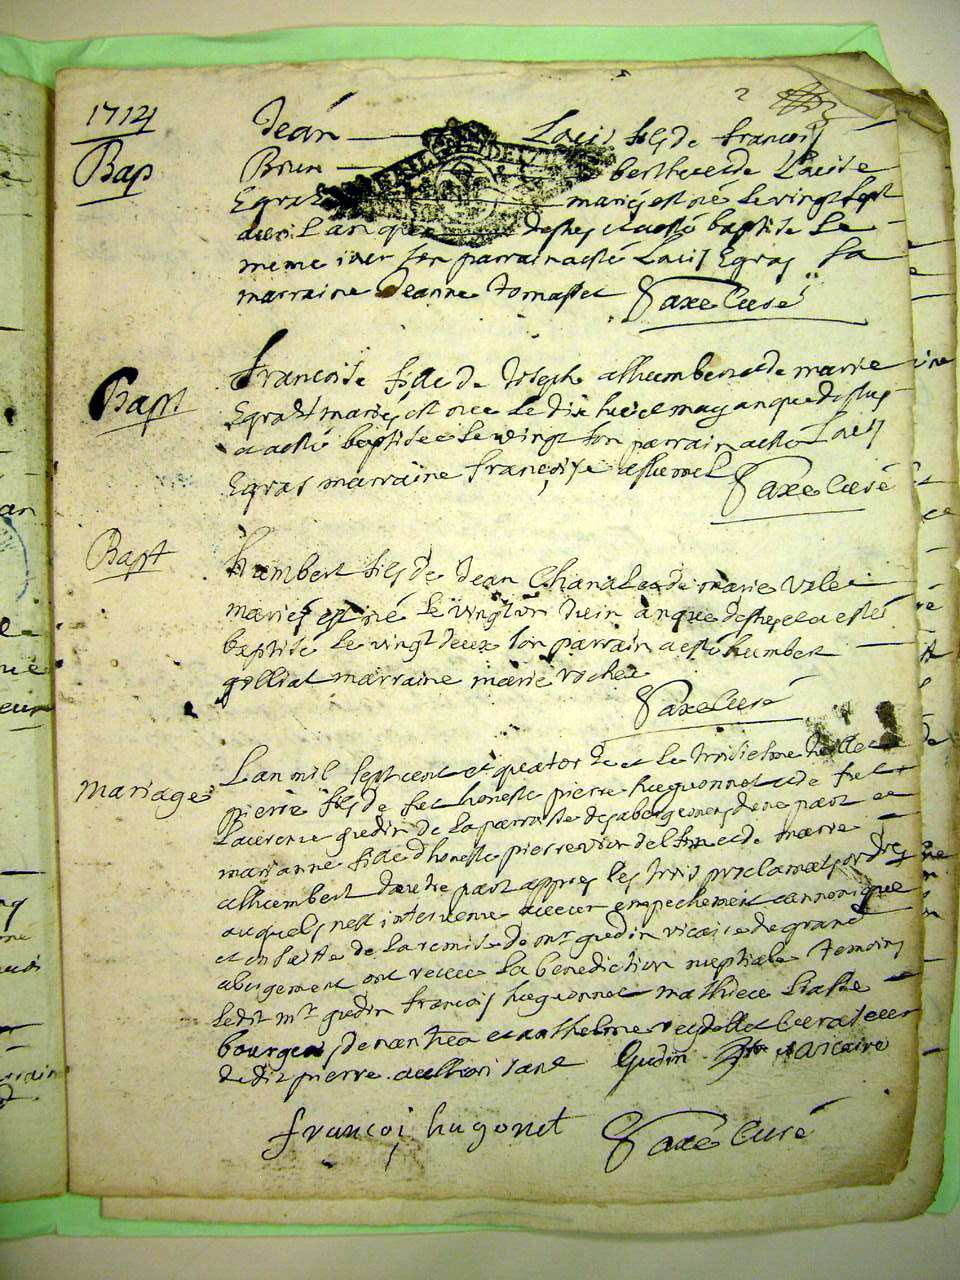 1714
Bap
Jean Louis fils de françois
Brun berthet et de Louise
Egraz mariés est né le vingt sept
avril an que dessus et a esté baptisé le
meme iour son parrain a esté Louis Egraz sa
marraine Jeanne tomasset Saxe Curé
Bapt
françoise fille de Joseph allhumbert et de marie
Egraz mariés est nee le dix huict may an que dessus
et a esté baptisée le vingt son parrain a esté Louis
Egraz marraine françoise
Saxe Curé
Bapt
humbert fils de Jean Chanal et de marie
mariés est né le vingt un Juin an que dessus et a esté
baptisé le vingt deux son parrain a esté humbert
golliat marraine marie rochex
Saxe Curé
Mariage
Lan mil sept cent et quatorze et le troisiesme Juillet
pierre fils de fut honeste pierre huguonnet et de fut
Laurence gudin de la parroisse d'une part et
marianne fille d'honeste pierre et de marie
allhumbert d'autre part appres les trois proclamats ordres
auquels n'est intervenu aucun empechement cannonique
et en suitte de la remise de mr gudin vicaire de grand
abergement ont receu la benediction nuptiale temoins
ledit mr gudin françois huguonnet mathieu
bourgeois de nantua et anthelme curateur
dudit pierre authorisant Gudin vicaire
françoi hugonet Saxe Curé